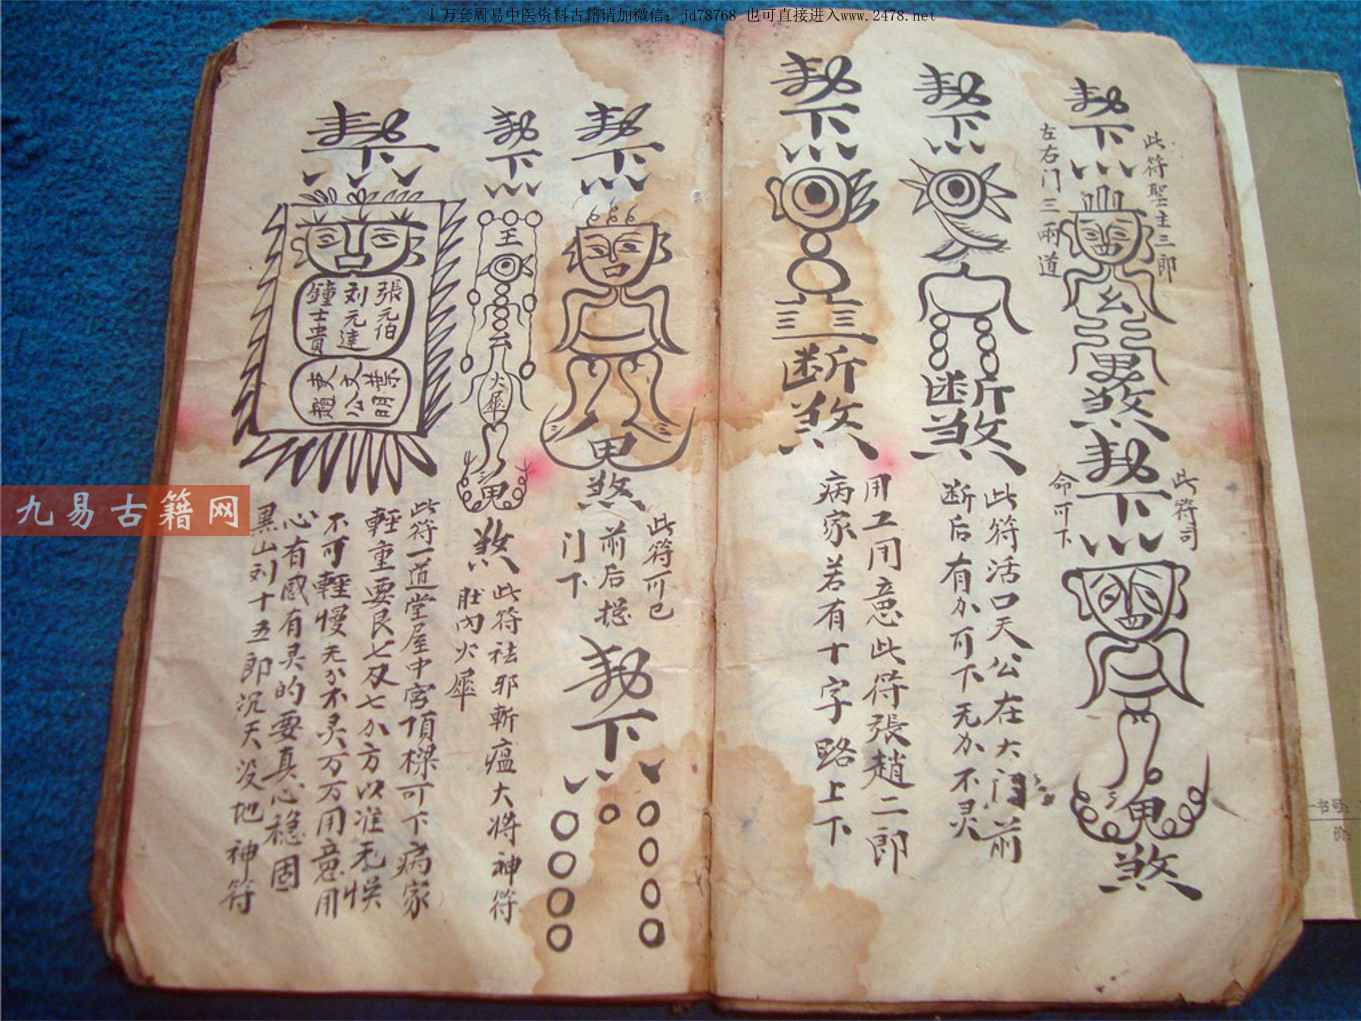 1万套周易中医资料古籍请加微信：jd78768 也可直接进入www.2478.net
此符聖主三郎
左右门三兩道
煞
此符司
命可下
煞
断
煞
此符活口天公在大门前
断后有力可下无力不灵
断
煞
用工用意此符張趙二郎
病家若有十字路上下
煞
此符可巳
前后
门下
下
王
火犀
煞
此符祛邪斬瘟大将神符
肚内火犀
張元伯
刘元達
鐘士貴
史文公
此符一道堂屋中宫頂樑可下病家
輕重要良七及七力方以准无悮
不可輕慢无力不灵万万用意用
心有感有灵的要真心穩固
黑山刘十五郎沉天没地神符
九易古籍网